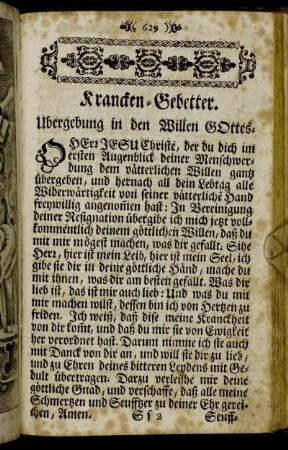 629
Krancken-Gebetter.
Ubergebung in den Willen GOttes.
O HErr JESU Christe, der du dich im
ersten Augenblick deiner Menschwer-
dung dem vätterlichen Willen gantz
übergeben, und hernach all dein Lebtag alle
Widerwärtigkeit von seiner vätterlichē Hand
freywillig angenom̄en hast: In Vereinigung
deiner Resignation übergibe ich mich jetzt voll-
kommentlich deinem göttlichen Willen, daß du
mit mir mögest machen, was dir gefällt. Sihe
Herr, hier ist mein Leib, hier ist mein Seel, ich
gibe sie dir in deine göttliche Händ, mache du
mit ihnen, was dir am besten gefällt. Was dir
lieb ist, das ist mir auch lieb: Und was du mit
mir machen wilst, dessen bin ich von Hertzen zu
friden. Ich weiß, daß dise meine Kranckheit
von dir kom̄t, und daß du mir sie von Ewigkeit
her verordnet hast. Darum nimme ich sie auch
mit Danck von dir an, und will sie dir zu lieb,
und zu Ehren deines bitteren Leydens mit Ge-
dult übertragen. Darzu verleyhe mir deine
göttliche Gnad, und verschaffe, daß alle meine
Schmertzen und Seufftzer zu deiner Ehr gerei-
chen, Amen. S s 2 Seuff-